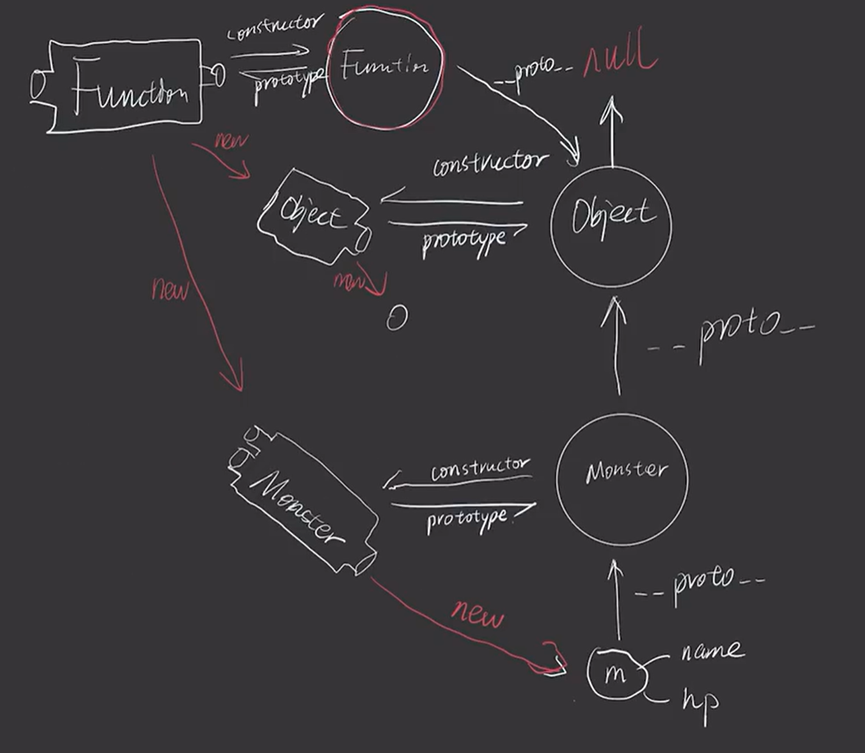 constructor
Function
Function
prototype
__proto__
null
new
constructor
Object
Object
prototype
new
new
O
__proto__
constructor
Monster
Monster
prototype
__proto__
new
name
m
hp